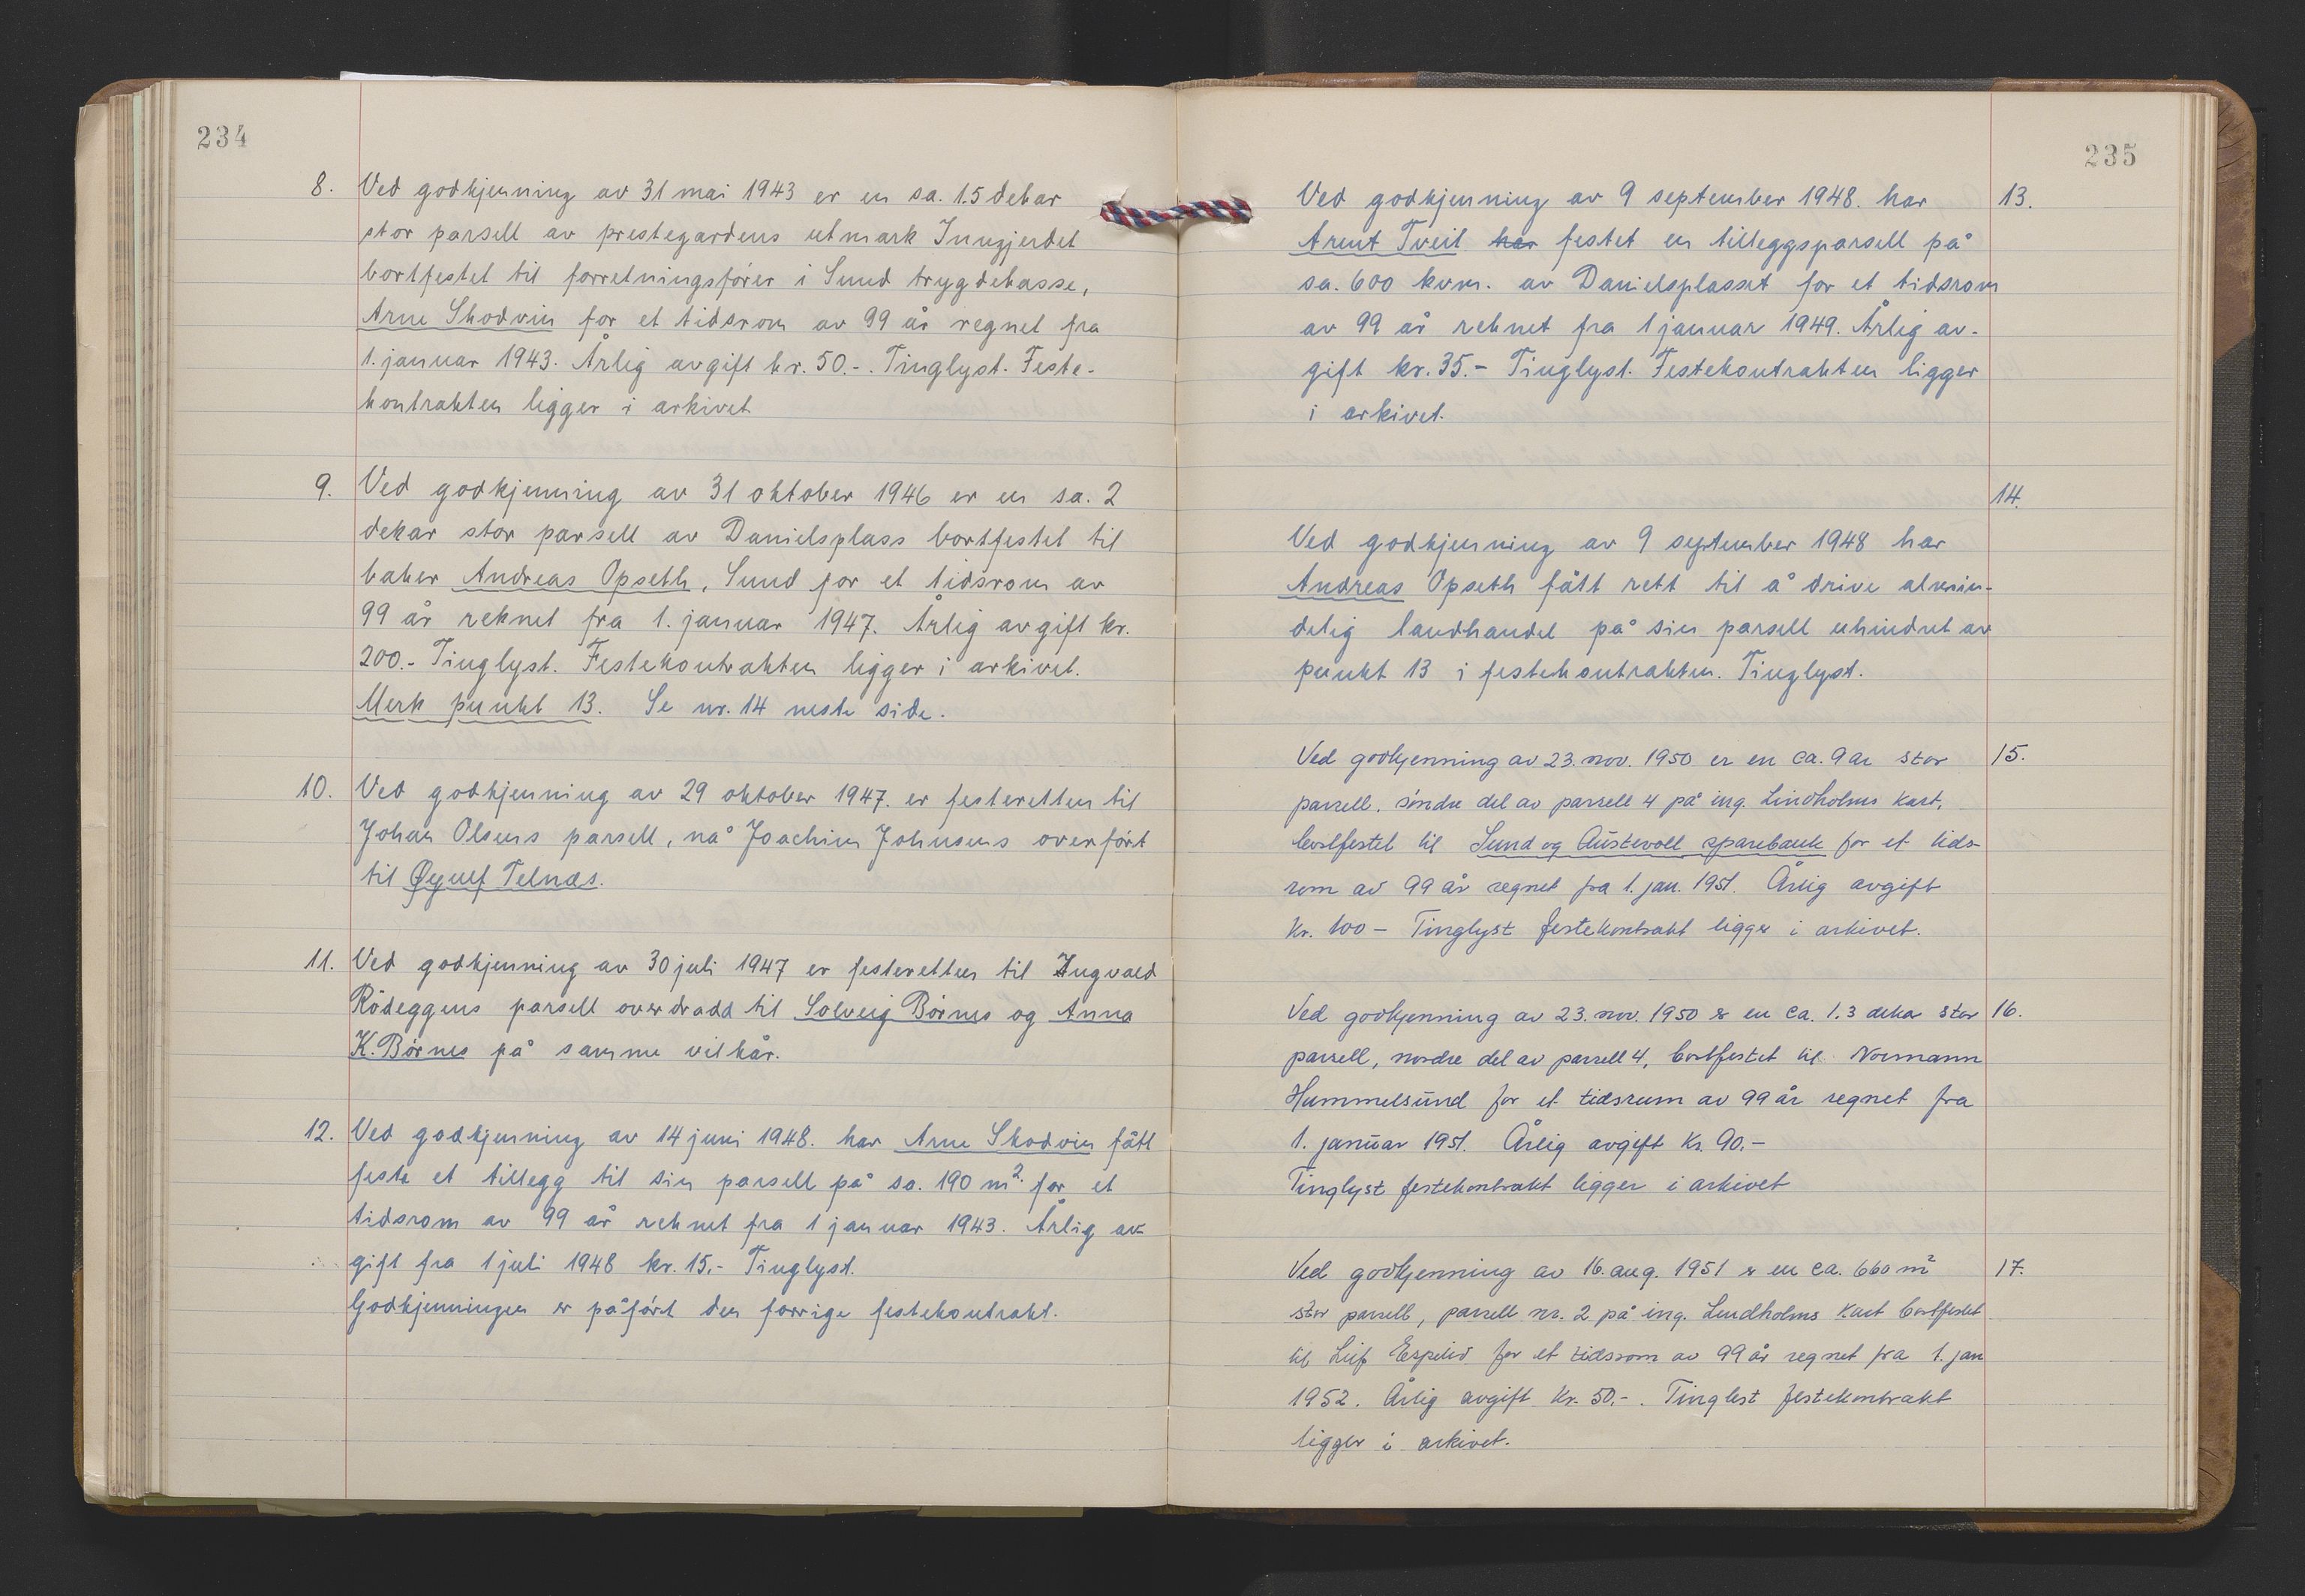 234
8. Ved godkjenning av 31 mai 1943 er en sa. 1.5 dekar
stor parsell av prestegardens utmark Inngjerdet
bortfestet til forretningsfører i Sund trygdekasse,
Arne Skodvin for et tidsrom av 99 år regnet fra
1. januar 1943. Årlig avgift kr. 50.-. Tinglyst. Feste-
kontrakten ligger i arkivet
9. Ved godkjenning av 31 oktober 1946 er en sa. 2
dekar stor parsell av Danielsplass bortfestet til
baker Andreas Opseth, Sund for et tidsrom av
99 år reknet fra 1. januar 1947. Årlig avgift kr.
200.- Tinglyst. Festekontrakten ligger i arkivet.
Merk punkt 13. Se nr. 14 neste side.
10. Ved godkjenning av 29 oktober 1947. er festeretten til
Johan Olsens parsell, nå Joachim Johnsens overført
til Øyulf Telnæs.
11. Ved godkjenning av 30 juli 1947 er festeretten til Ingvald
Rødeggens parsell overdradd til Solveig Børnes og Anna
K. Børnes på samme vilkår.
12. Ved godkjenning av 14 juni 1948. har Arne Skodvin fått
feste et tillegg til sin parsell på sa. 190 m2. for et
tidsrom av 99 år reknet fra 1 januar 1943. Årlig av-
gift fra 1 juli 1948 kr. 15.- Tinglyst.
Godkjenningen er påført den forrige festekontrakt.
235
Ved godkjenning av 9 september 1948. har 13.
Arent Tveit har festet en tilleggsparsell på
sa. 600 kvm. av Danielsplasset for et tidsrom
av 99 år reknet fra 1 januar 1949. Årlig av-
gift kr. 35.- Tinglyst. Festekontrakten ligger
i arkivet.
14.
Ved godkjenning av 9 september 1948 har
Andreas Opseth fått rett til å drive almin-
delig landhandel på sin parsell uhindret av
punkt 13 i festekontrakten. Tinglyst.
Ved godkjenning av 23. nov. 1950 er en ca. 9 ar stor 15.
parsell, søndre del av parsell 4 på ing. Lindholms kart,
bortfestet til Sund og Austevoll sparebank for et tids-
rom av 99 år regnet fra 1. jan. 1951. Årlig avgift
Kr. 100 - Tinglyst festekontrakt ligger i arkivet.
Ved godkjenning av 23. nov. 1950 er en ca. 1.3 dekar stor 16.
parsell, nordre del av parsell 4, bortfestet til Normann
Hummelsund for et tidsrum av 99 år regnet fra
1. januar 1951. Årlig avgift Kr. 90.-
Tinglyst festekontrakt ligger i arkivet
Ved godkjenning av 16. aug. 1951 er en ca. 660 m2 17.
stor parsell, parsell nr. 2 på ing. Lindholms kart bortfestet
til Leif Espelid for et tidsrom av 99 år regnet fra 1. jan
1952. Årlig avgift Kr. 50.-. Tinglest festekontrakt
ligger i arkivet.